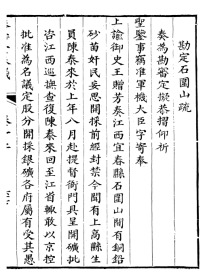 勘定石圍山疏
奏為勘審定擬恭摺仰祈
聖鑒事竊准軍機大臣字寄奉
上諭御史王贈芳奏江西宜春縣石圍山開有銅鉛
砂苗奸民妄思開採前經封禁今聞有上高縣生
員陳泰來於上年八月赴提督衙門具呈開礦批
咨江西巡撫查復陳泰來回至江省輒敢以京控
批准為名議定股分開採銀礦各府屬有受其愚